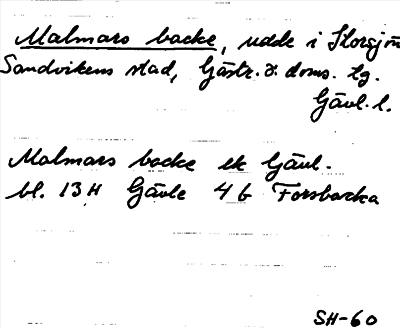 Malmars backe, udde i Storsjön
Sandvikens stad, Gästr. ö. doms. tg.
Gävl. l.
Malmars backe ek Gävl.
bl. 13H Gävle 4 b Forsbacka
SH-60